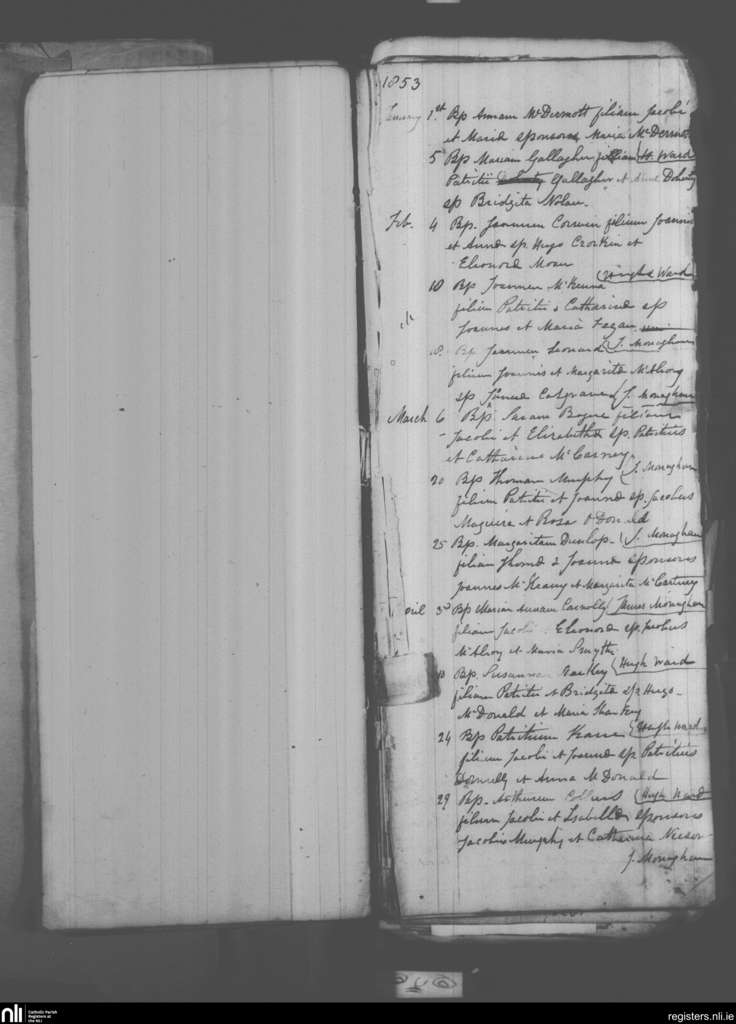 1853
1st Bp Annam McDermott filiam Jacobi
et Maria sponsores Maria McDermott
5 Bp Mariam Gallagher filiam H. Ward
Patritii Gallagher et Doherty
sp Bridgita Nolan.
Feb. 4 Bp. Joannem Corwin filium Joannis
et Anna sp. Hugo Croskin et
Eleonora Moan
Hugh Ward
10 Bp Joannem McKenna
filium Patritii & Catharina sp
Joannes et Maria Fagan
J. Monaghan
18. Bp Joannem Leonard
filium Joannis et Margarita McIlroy
sp Cosgrave J. Monaghan
March 6 Bp. Susam Bogue filiam
Jacobi et Elizabetha Sp. Patritius
et Catharina McCarney.
J. Monaghan
20 Bp Thomam Murphy
filium Patritii et Joanna sp. Jacobus
Maguira et Rosa O Donald
25 Bp. Margaritam Dunlop. J. Monaghan
filiam Thoma & Joanna Sponsores
Joannes McKeany et Margarita McCartney
3d Bp Mariam Annam Connolly James Monaghan
filiam Jacobi Eleonora sp. Jacobus
McIlroy et Maria Smyth.
Hugh Ward
Bp. Susannam
filiam Patritii & Bridgita sp. Hugo
McDonald et Maria Sharkey
24 Bp Patritium Kane Hugh Ward
filium Jacobi et Joanna sp Patritius
Donnelly et Anna McDonald
29 Bp. Arthurum Collins Hugh Ward
filium Jacobi et Isabella sponsores
Jacobus Murphy et Catharina
J. Monaghan
nli
Catholic Parish
Registers at
the NLI
registers.nli.ie